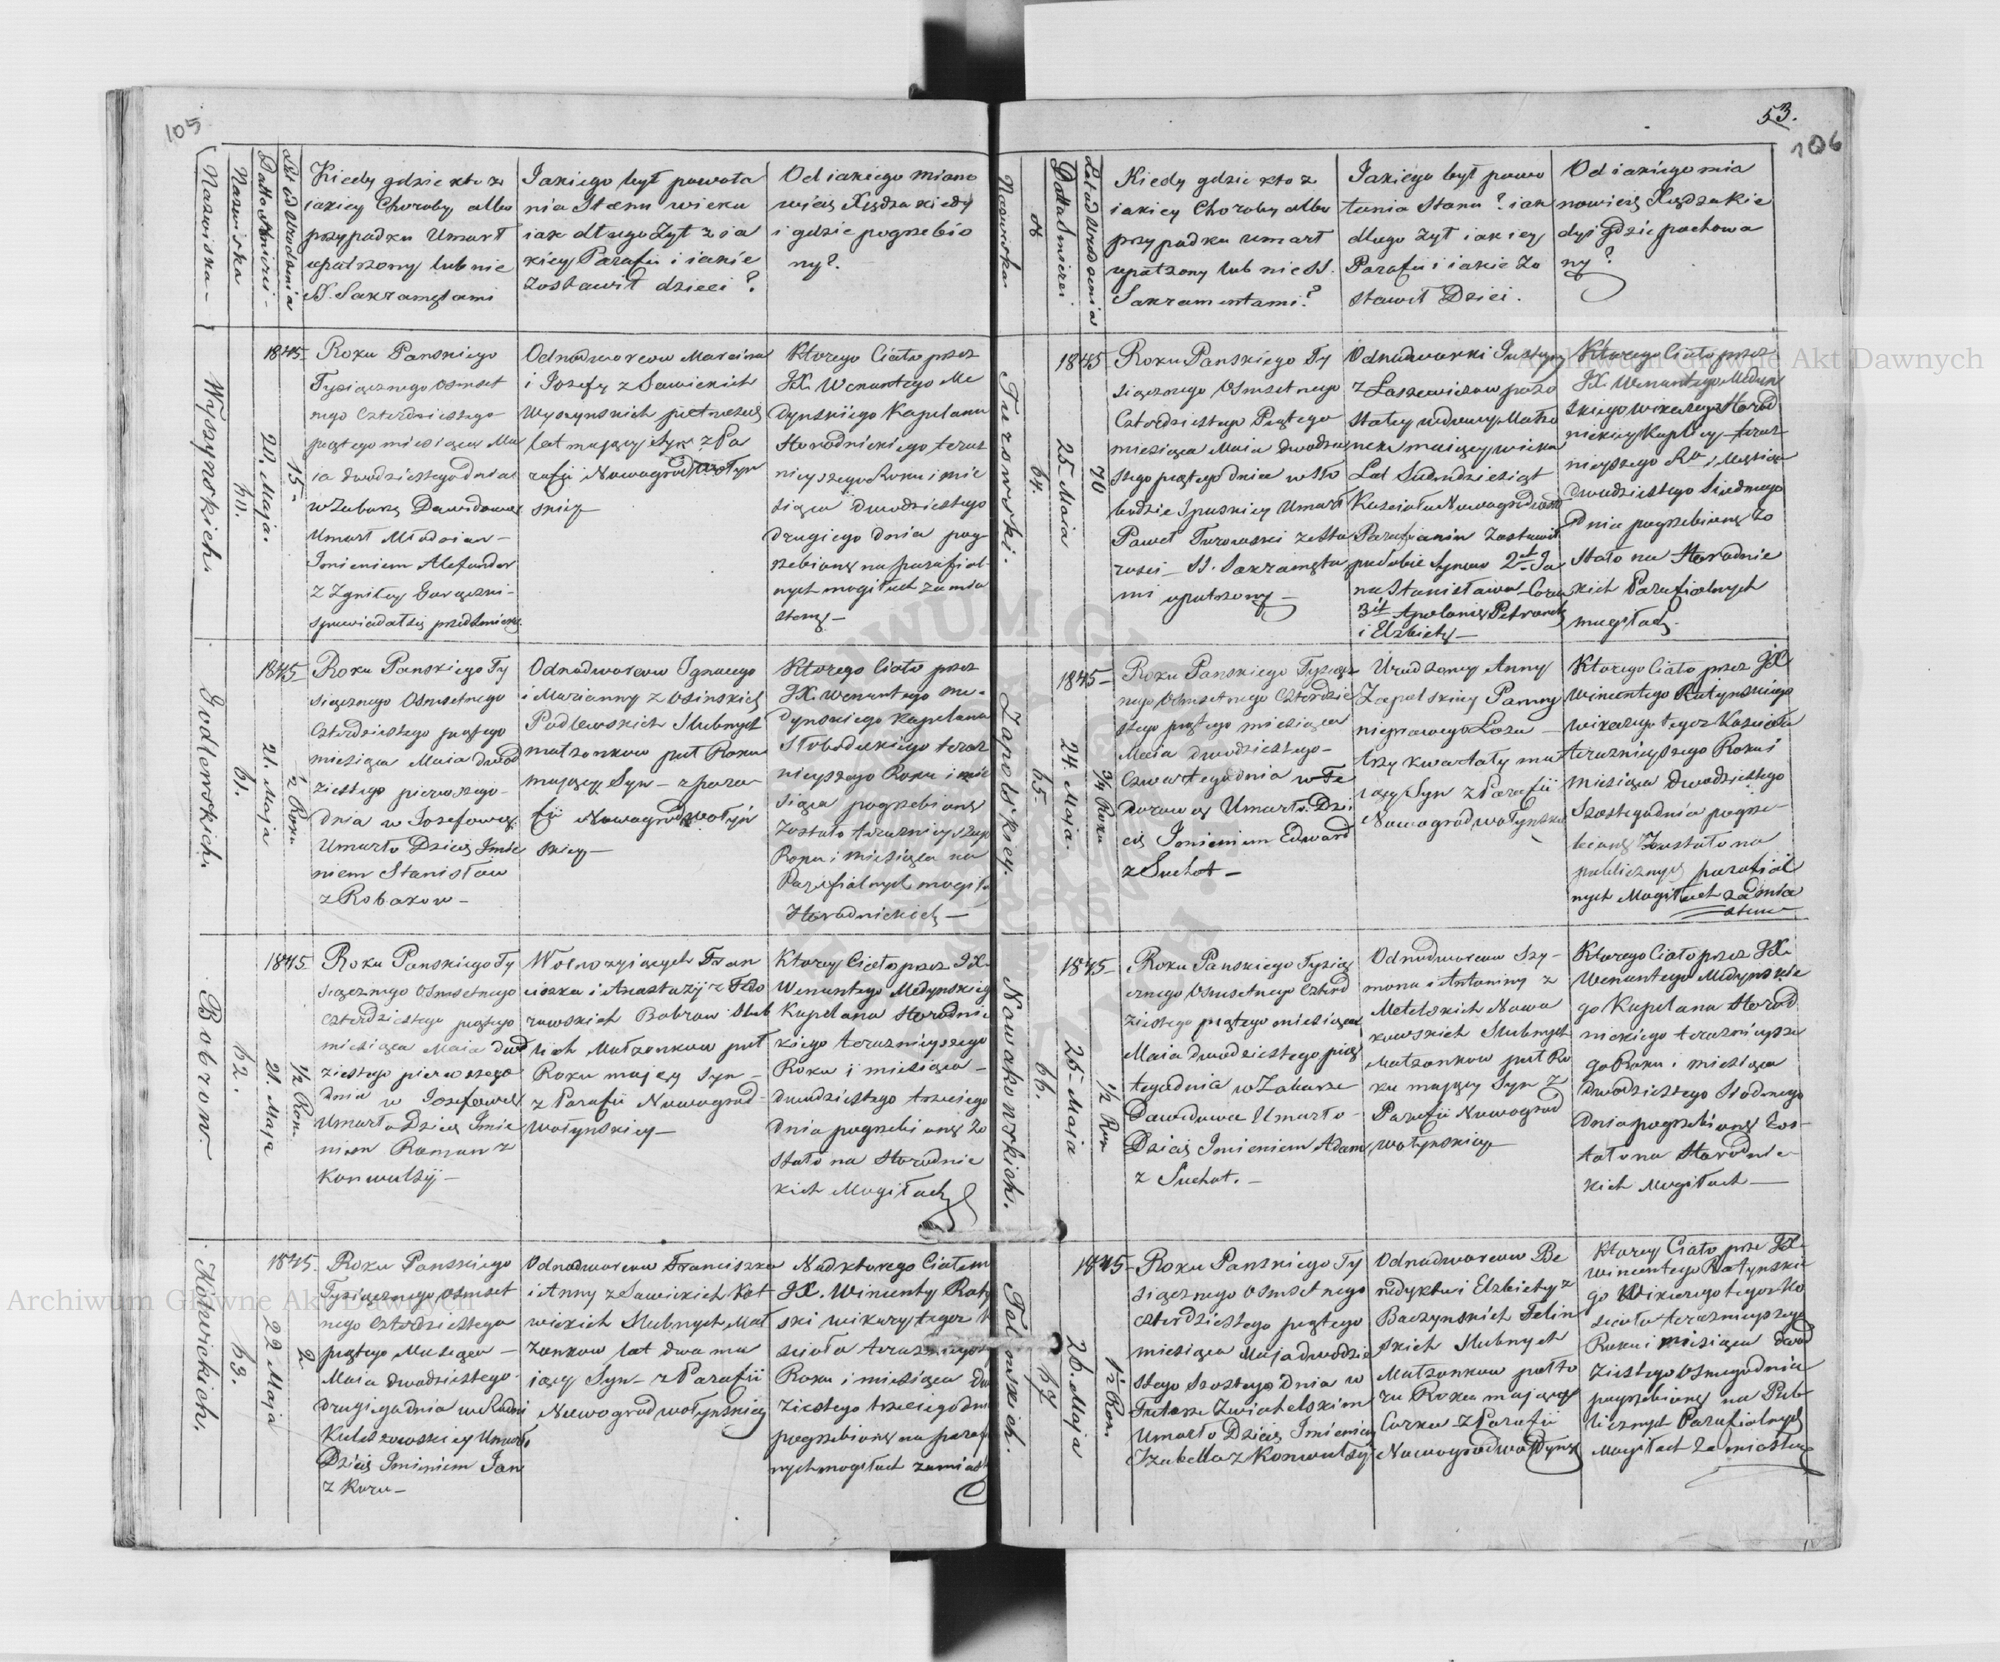 105
Nazwiska
Numerka
Datto Smierci
Lat od Urodzenia
Kiedy gdzie kto z
iakiey Choroby albo
przypadku Umarł
opatrzony lub nie
S. Sakramętami
Iakiego był powoła
nia Stanu wieku
iak długo Zył z ia
kiey Parafii i iakie
Zostawił dzieci?
Od iakiego miano
wicię Xiędza kiedy
i gdzie pogrzebio
ny?
Wyszynskich.
60.
1845
20. Maja.
15-
Roku Panskiego
Tysiącznego osmset
nego Czterdziestego
piątego miesiąca Ma
ia dwudziestego dnia
w Zubarę Dawidowce
Umarł Młodzian
Imieniem Alexander
z Zgniłey Gorączki
spowiadał się przed Smiercią
Odnodworcow Marcina
i Iozefy z Sawickich
Wyszynskich pietnascie
lat maiący Syn z Pa
rafii Nowogradwołyn
skiey
Ktorego Ciało przez
JX. Wenantego Me
dynskiego Kapelana
Horodnickiego teraz
nieyszego Roku i mie
siąca dwudziestego
drugiego dnia pog-
rzebionę na parafial
nych mogiłach za mia
stem
Podlewskich.
61.
1845
21. Maja
½ Roku
Roku Panskiego Ty
siącznego Osmsetnego
Czterdziestego piątego
miesiąca Maia dwud
ziestego pierwszego
dnia w Iosefowce
Umarło Dziecię Imie
niem Stanisław
z Robakow
Odnodworcow Ignacego
i Marianny z Osinskich
Podlewskich Slubnych
małzonkow puł Roku
maiący Syn z para
fii Nowogradwołyn
skiey
Ktorego Ciało przez
JX. Wenantego Me-
dynskiego Kapelana
Słobodzkiego teraz
nieyszego Roku i mie
siąca pogrzebionę
Zostało teraznieyszego
Roku i miesiąca na
Parafialnych mogiłach
Horodnickich
Bobrow.
62.
1845
21. Maja
1/2 Rou.
Roku Panskiego Ty
siącznego osmsetnego
czterdziestego piątego
miesiąca Maia dwud
ziestego pierwszego
dnia w Iosefowce
Umarło Dziecię Imie
niem Roman z
Konwulsij
Wolnozyiących Fran
ciszka i Anastazij z Fedo
rowskich Bobrow Slub
nich Małzonkow puł
Roku maiący Syn
z Parafii Nowograd
Wołynskiey
Ktorey Ciało przez JX.
Wenantego Medynskieg
Kapelana Horodnic
kiego teraznieyszego
Roku i miesiąca
dwudziestego trzeciego
dnia pogrzebionę zo
stało na Horodnic
kich Mogiłach
Kotwickich.
63.
1845.
22 Maja
2.
Roku Panskiego
Tysiącznego osmset
nego Czterdziestego
piątego Miesiąca
Maia dwudziestego
drugiego dnia w
Umarło
Dziecię Imieniem Jan
z Kuru
Odnodworcow Franciszka
i Anny z Sawickich Kot
wickich Slubnych Mał
zonkow lat dwa ma
iący Syn z Parafii
Nowogradwołynskiey
Nad ktorego Ciałem
JX. Wincenty Raty
ski wikary tegoz
scioła teraznieysz
Roku i miesiąca dw
ziestego trzeciego dnia
pogrzebionę na paraf
nych mogiłach zamiast
53.
106
Nazwiska
N
Datta Smierci
Lat od Urodzenia
Kiedy gdzie kto z
iakiey Choroby albo
przypadku umarł
opatrzony lub nie SS.
Sakramentami?
Iakiego był powo
łania Stanu? iak
długo Zył iakiey
Parafii i iakie Zo
stawił Dzieci.
Od iakiego mia
nowicię Xiędza kie
dy i gdzie pochowa
ny?
Turowski.
64.
1845
25 Maia
70
Roku Panskiego Ty
siącznego Osmsetnego
Czterdziestego Piątego
miesiąca Maia dwudzie
stego piątego dnia w Sło
bodzie Umarł
Paweł Turowski ze Sta
rości SS. Sakramęta
mi opatrzony
Odnodworki Justyny
z Laszewiczow pozo
stałey wdowy Małzo
nek maiący wieku
Lat Siedmdziesiąt
Koscioła Nowogradwoł
Parafianin Zostawił
po sobie Synow 2ch Ja
na Stanisława Corek
3ch Apolonię Petronelę
i Elzbietę
Ktorego Ciało przez
JX. Wenantego Medyn
skiego wikarego Horod
nickiey Kaplicy teraz
nieyszego Ro i Miesiąca
dwudziestego Siodmego
dnia pogrzebionę Zo
stało na Horodnic
kich Parafialnych
mogiłach
Zapolskiey.
65.
1845
24 Maja
3/4 Roku
Roku Panskiego Tysiącz
nego Osmsetnego Czterdzie
stego piątego miesiąca
Maia dwudziestego
Czwartego dnia w Fe
dorowcę Umarło Dzie
cię Imieniem Edward
z Suchot
Urodzoney Anny
Zapolskiey Panny
nieprawego Łoza
trzy kwartały ma
iący Syn z Parafii
Nowogradwołynski
Ktorego Ciało przez JX.
Wincentego Ratynskiego
wikarego tegoz Koscioła
teraznieyszego Roku i
miesiąca dwudziestego
Szostego dnia pogrze-
bionę Zostało na
publicznych parafial
nych Mogiłach za mia
stem
Nowakowskich.
66.
1845
25 Maja
1/2 Rou
Roku Panskiego Tysią
cznego Osmsetnego Czterd
ziestego piątego miesiąca
Maia dwudziestego pią
tego dnia w Zabarze
Dawidowce Umarło
Dziecię Imieniem Adam
z Suchot.
Odnodworcow Szy-
mona i Antoniny z
Metelskich Nowa
kowskich Slubnych
Małzonkow puł Ro
ku maiący Syn z
Parafii Nowograd
wołynskiey
Ktorego Ciało przez JX.
Wenantego Medynskie
go Kapelana Horod
nickiego teraznieysze
go Roku i miesiąca
dwudziestego Siodmego
Dnia pogrzebionę Zos-
tało na Horodnic
kich Mogiłach
Felinskich.
67
1845
26. Maja
1½ Rou.
Roku Panskiego Ty
siącznego osmsetnego
czterdziestego piątego
miesiąca Maja dwudzie
stego Szostego Dnia w
Futorze Zwiahelskim
Umarło Dziecię Imieniem
Izabella z Konwulsij
Odnodworcow Be
nedykta i Elzbiety z
Baczynskich Felin
skich Slubnych
Małzonkow połto
ra Roku maiąca
Corka z Parafii
Nowogradwołynsk
Ktorey Ciało prze JX
Wincentego Ratynskie
go Wikarego tegoz Ko
scioła teraznieyszego
Roku i miesiąca dwud
ziestego Osmego dnia
pogrzebionę na Pub
licznych Parafialnych
Mogiłach Za miastem
Archiwum Główne Akt Dawnych
Archiwum Główne Akt Dawnych